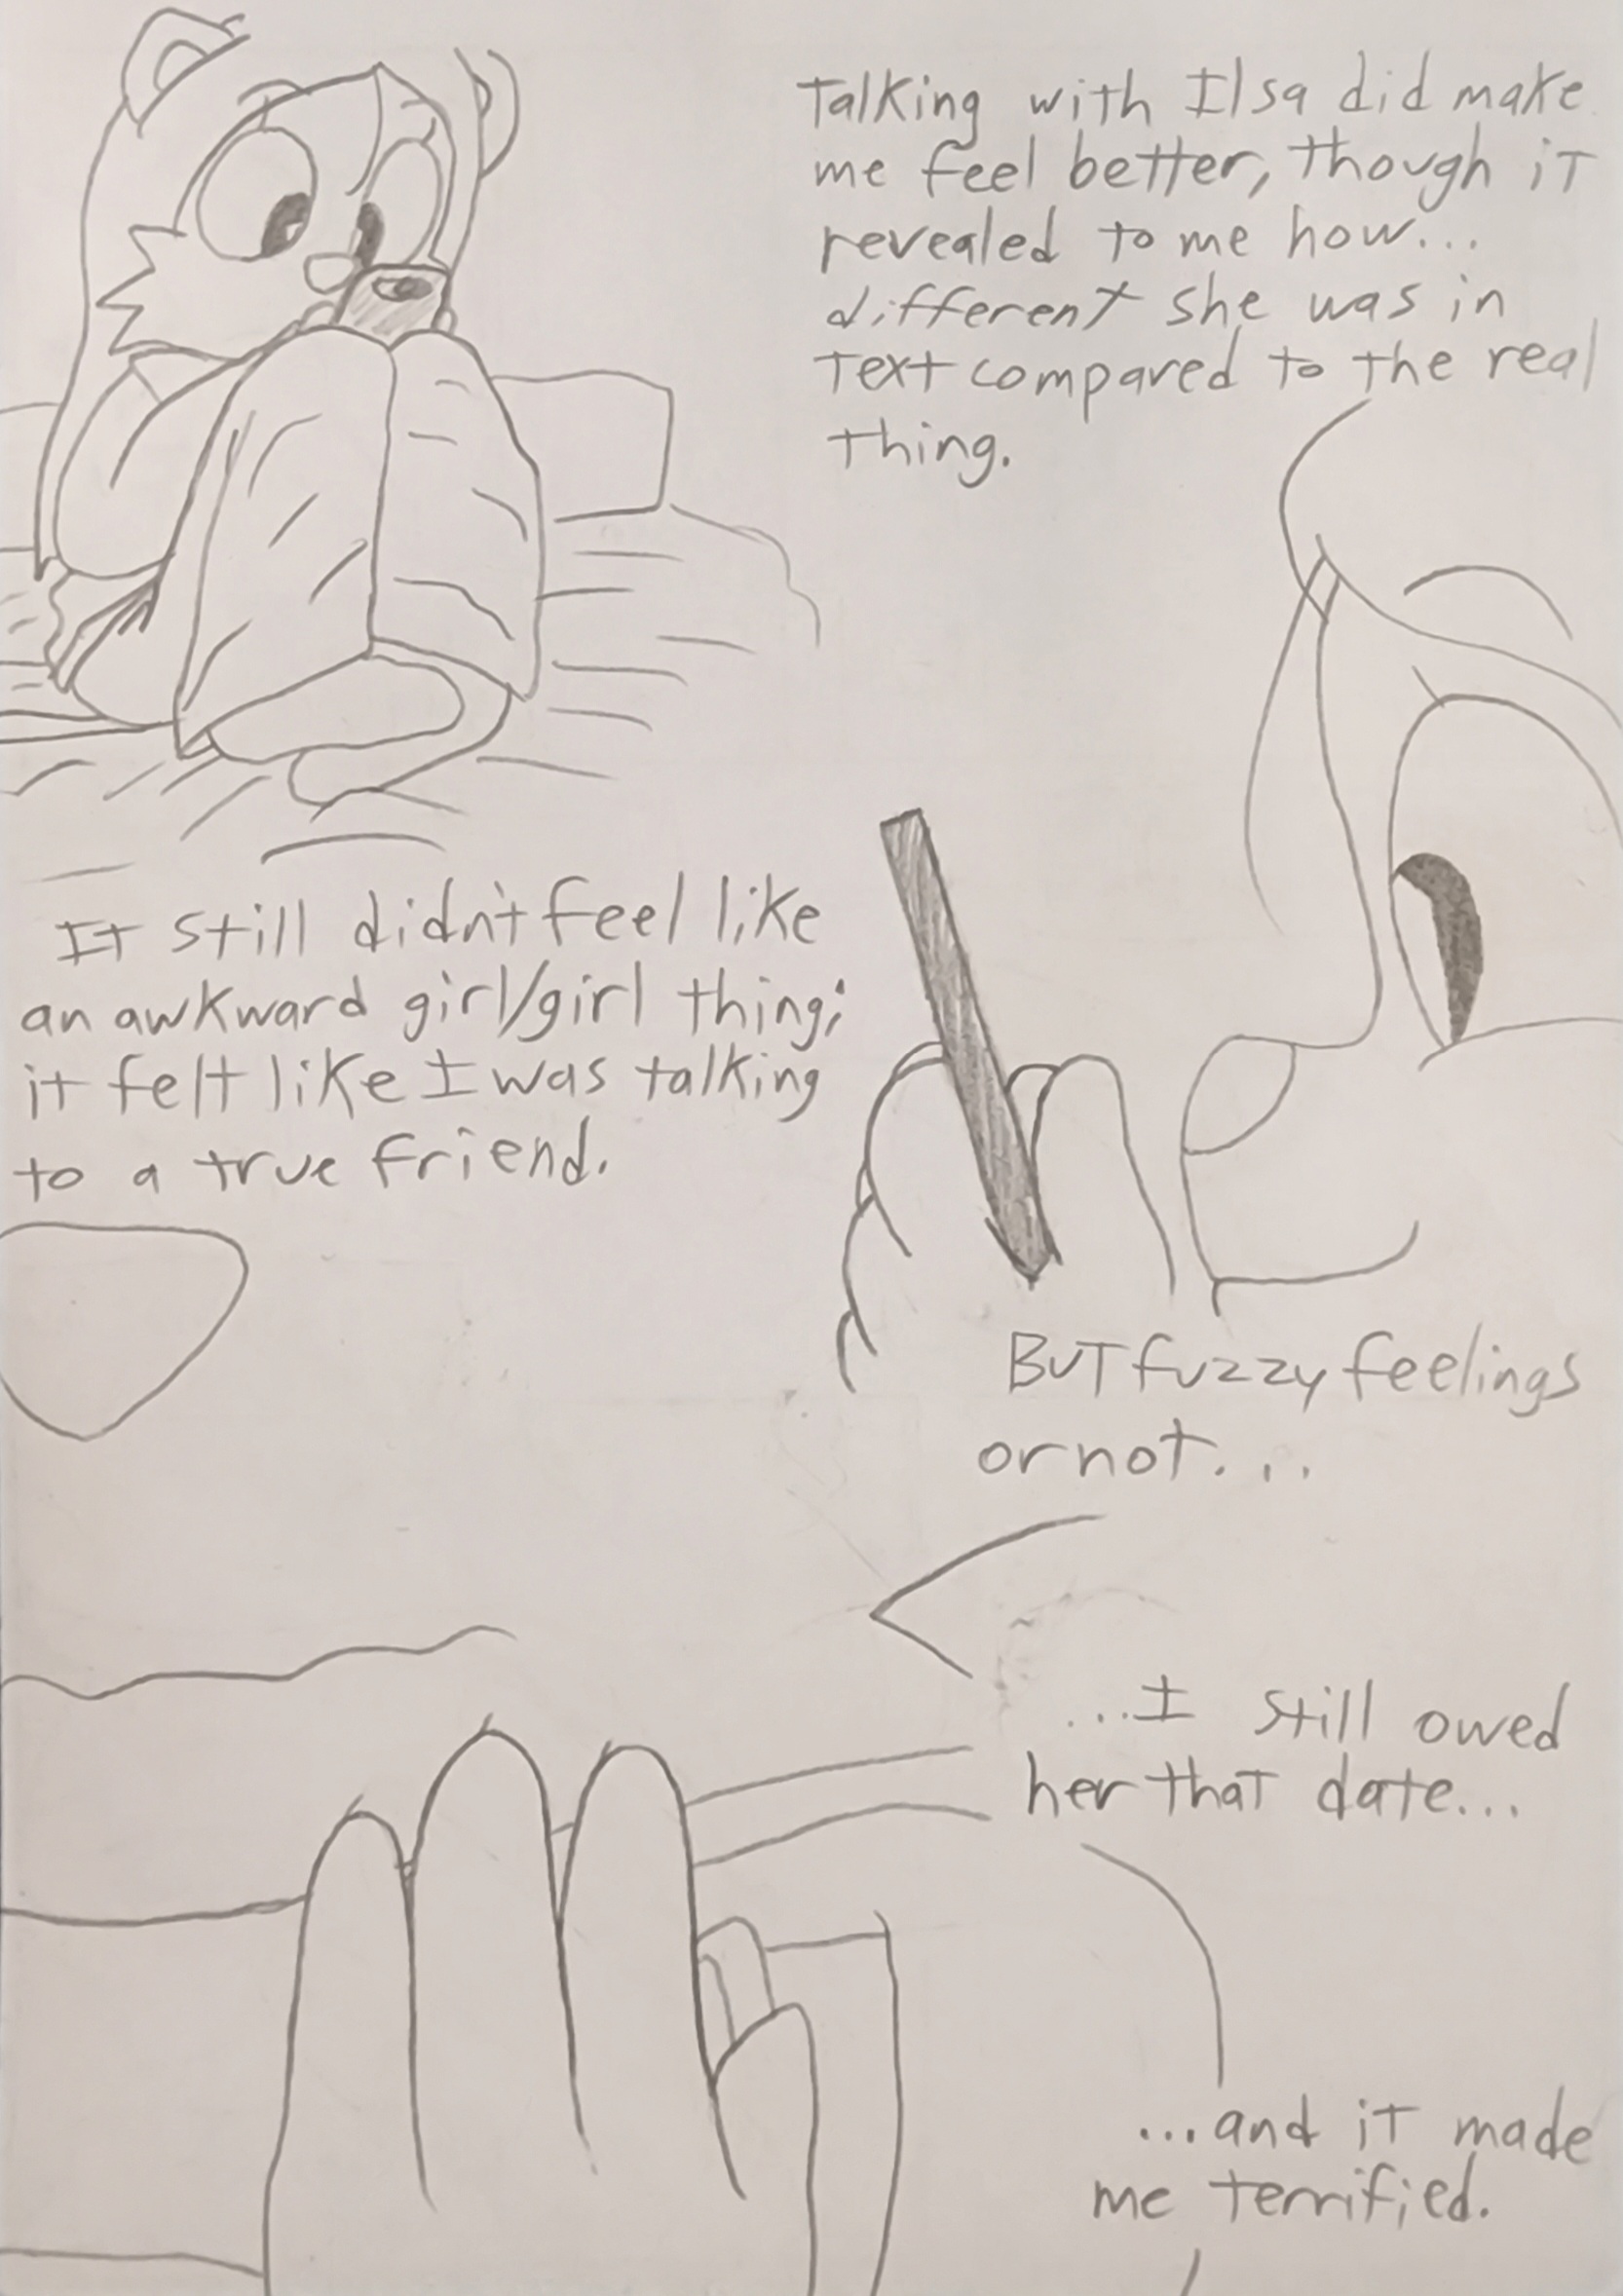 Talking with Ilsa did make
me feel better, though it
revealed to me how...
different she was in
text compared to the real
thing.
It still didn't feel like
an awkward girl/girl thing;
it felt like I was talking
to a true friend.
But fuzzy feelings
or not...
...I still owed
her that date...
...and it made
me terrified.